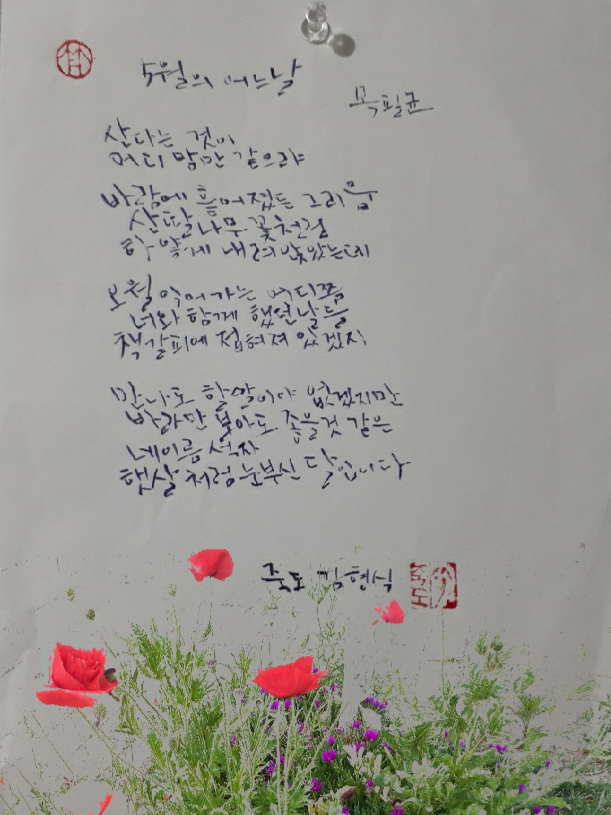 5월의 어느날
목필균
산다는 것이
어디 맘만 같으랴
바람에 흩어졌든 그리움
산딸나무꽃처럼
하얗게 내려앉았는데
오월 익어가는 어디쯤
너와 함께 했던날들
책갈피에 접혀져 있겠지
만나도 할말이야 없겠지만
바라만 보아도 좋을것 같은
네이름 석자
햇살처럼 눈부신 달입니다
죽도 김현식
죽도